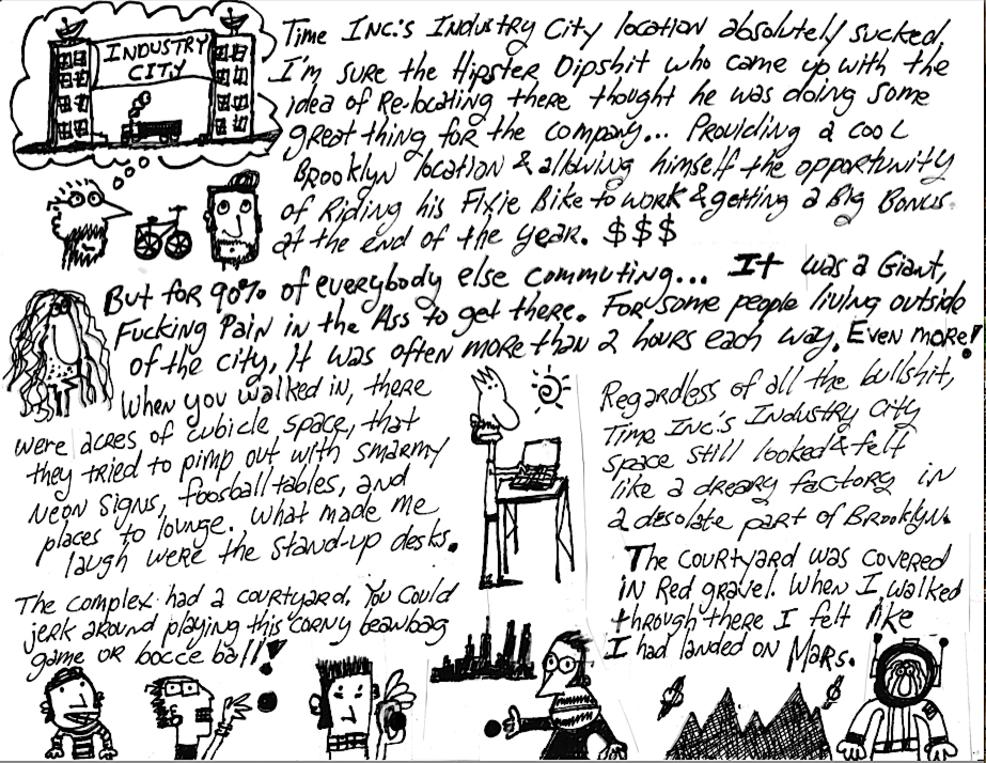 INDUSTRY
CITY
Time Inc.'s Industry City location absolutely sucked.
I'm sure the Hipster Dipshit who came up with the
idea of Re-locating there thought he was doing some
great thing for the company... Providing a cool
Brooklyn location & allowing himself the opportunity
of Riding his Fixie Bike to work & getting a Big Bonus
at the end of the year. $$$
But for 90% of everybody else commuting... It was a Giant,
Fucking Pain in the Ass to get there. For some people living outside
of the city, It was often more than 2 hours each way. Even more!
When you walked in, there
were acres of cubicle space, that
they tried to pimp out with smarmy
neon signs, foosball tables, and
places to lounge. What made me
laugh were the stand-up desks.
The complex had a courtyard. You could
jerk around playing this corny beanbag
game or bocce ball!
Regardless of all the bullshit,
Time Inc.'s Industry City
space still looked & felt
like a dreary factory in
a desolate part of Brooklyn.
The courtyard was covered
in Red gravel. When I walked
through there I felt like
I had landed on Mars.